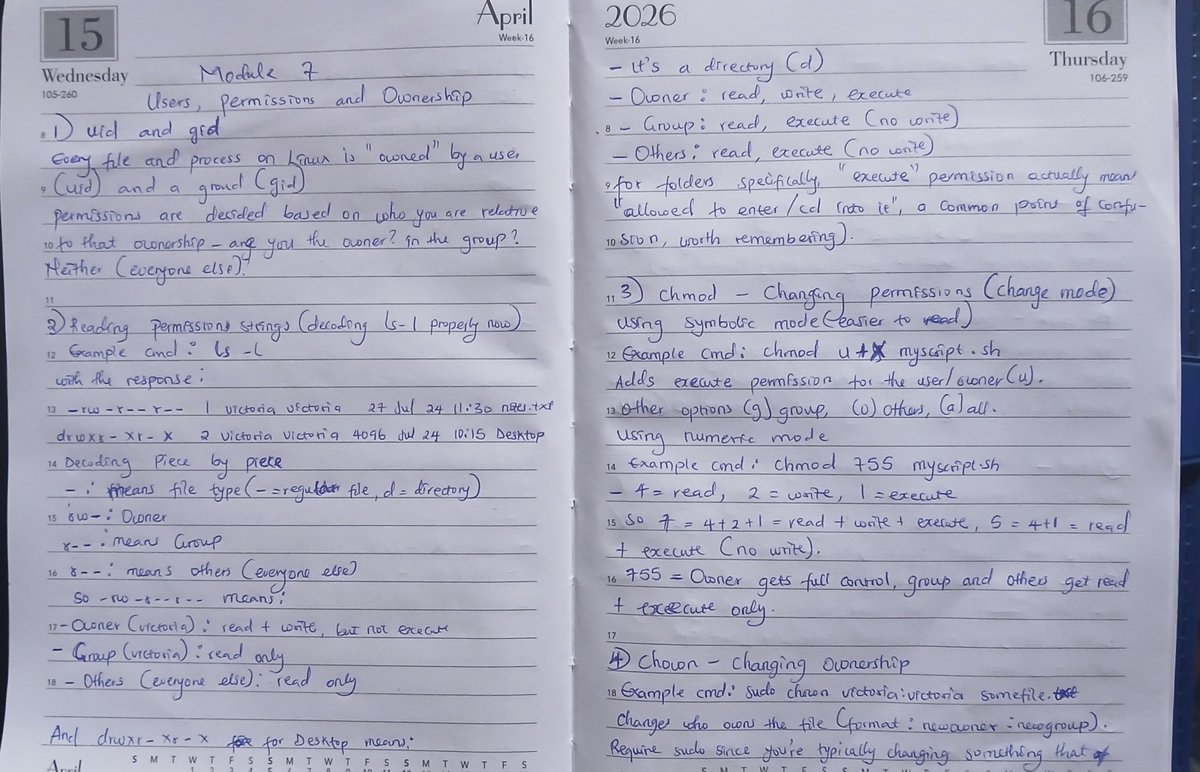 15
April
Week-16
Wednesday
105-260
Module 7
Users, permissions and Ownership
8 1) uid and gid
Every file and process on Linux is "owned" by a user
9 (uid) and a groud (gid)
permissions are decided based on who you are relative
10 to that ownership - are you the owner? in the group?
Neither (everyone else)?
11
2) Reading permissions strings (decoding ls-l properly now)
12 Example cmd: ls -l
with the response:
13 -rw-r--r-- 1 victoria victoria 27 Jul 24 11:30 notes.txt
drwxr-xr-x 2 victoria victoria 4096 Jul 24 10:15 Desktop
14 Decoding Piece by piece
- : means file type (- = regular file, d = directory)
15 rw-: Owner
r--: mean Group
16 r--: means others (everyone else)
So -rw-r--r-- means:
17 - Owner (victoria): read + write, but not execute
- Group (victoria): read only
18 - Others (everyone else): read only
And drwxr-xr-x for Desktop means:
April
S M T W T F S S M T W T F S S M T W T F S
2026
Week-16
16
Thursday
106-259
- It's a directory (d)
- Owner: read, write, execute
8 - Group: read, execute (no write)
- Others: read, execute (no write)
9 for folders specifically, "execute" permission actually mean
"allowed to enter/cd into it", a common point of confu-
10 sion, worth remembering).
11 3) Chmod - Changing permissions (change mode)
Using symbolic mode (easier to read)
12 Example cmd: chmod u+x myscript.sh
Adds execute permission for the user/owner (u).
13 Other options (g) group, (o) others, (a) all.
Using numeric mode
14 Example cmd: chmod 755 myscript.sh
- 4 = read, 2 = write, 1 = execute
15 So 7 = 4+2+1 = read + write + execute, 5 = 4+1 = read
+ execute (no write).
16 755 = Owner gets full control, group and others get read
+ execute only.
17
4) Chown - Changing Ownership
18 Example cmd: sudo chown victoria:victoria somefile.txt
Changes who own the file (format: newowner:newgroup).
Require sudo since you're typically changing something that